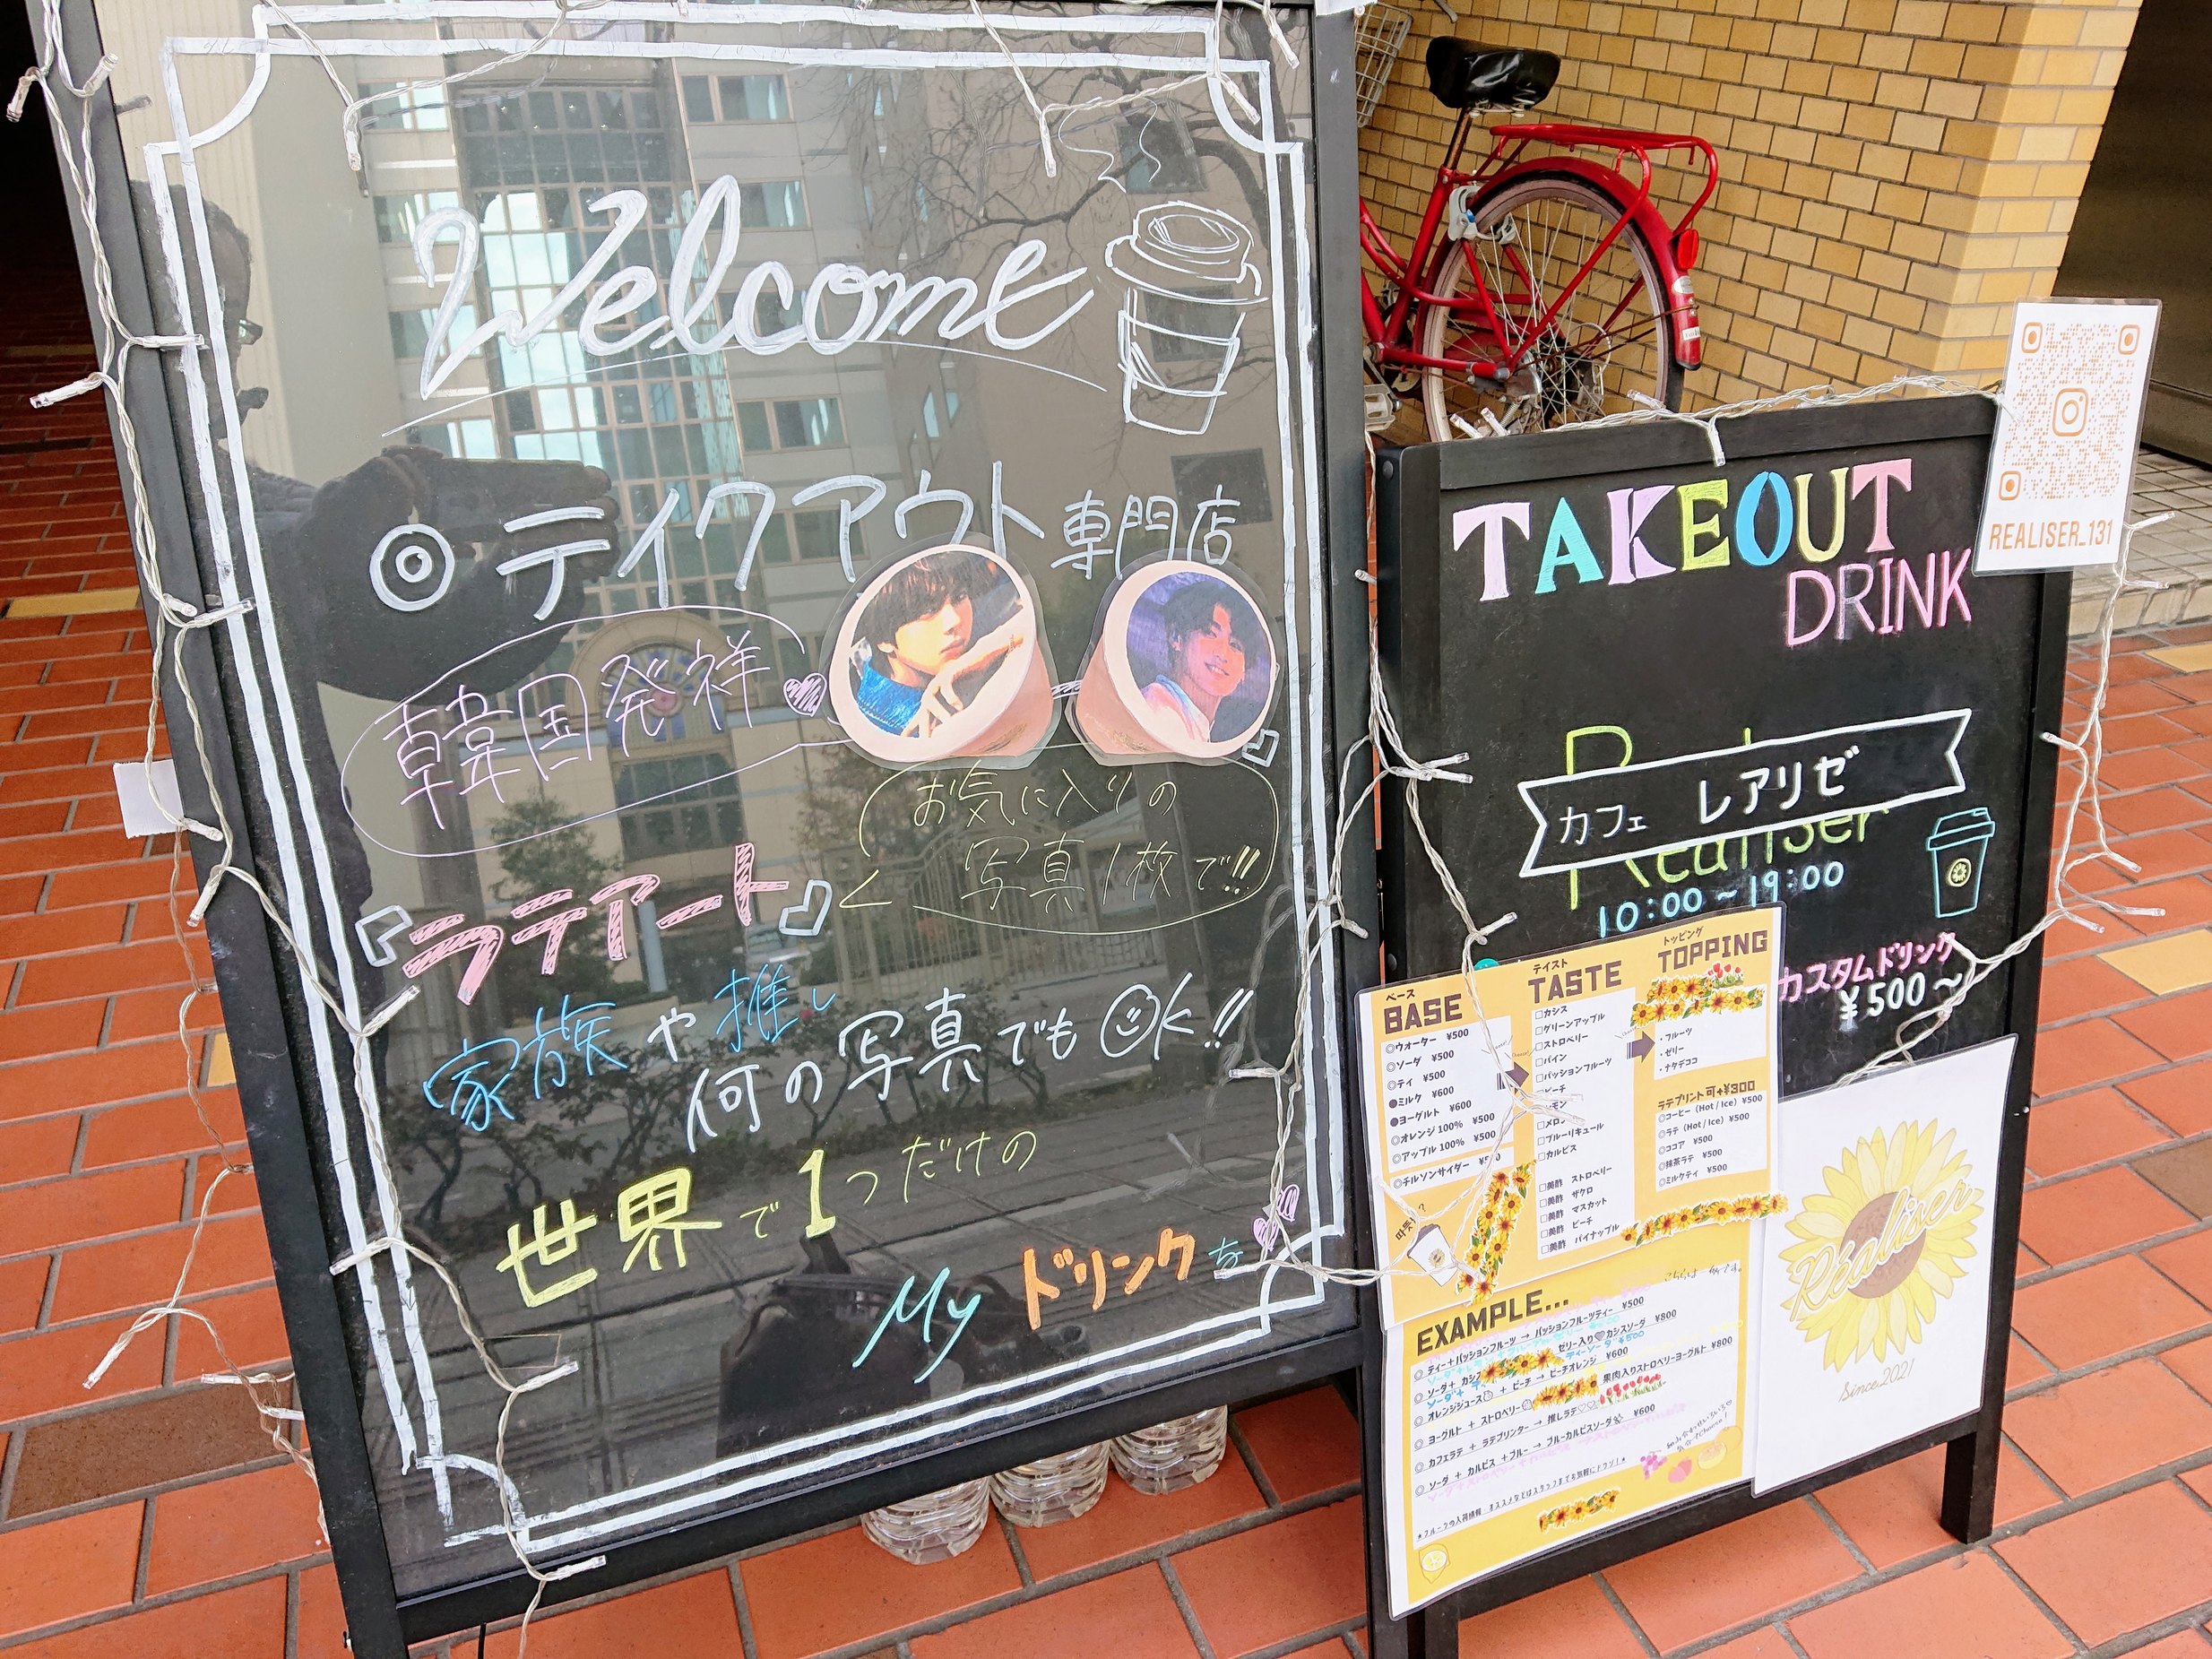 Welcome
◎テイクアウト専門店
韓国発祥
お気に入りの
写真1枚で!!
『ラテアート』
家族や推し
何の写真でもOK!!
世界で1つだけの
Myドリンクを
REALISER_131
TAKEOUT
DRINK
カフェ レアリゼ
Realiser
10:00~19:00
カスタムドリンク
¥500~
ベース
BASE
◎ウォーター ¥500
◎ソーダ ¥500
◎ティ ¥500
●ミルク ¥600
●ヨーグルト ¥600
◎オレンジ100% ¥500
◎アップル100% ¥500
◎チルソンサイダー
テイスト
TASTE
□カシス
□グリーンアップル
□ストロベリー
□パイン
□パッションフルーツ
□ブルーリキュール
□カルピス
□美酢 ストロベリー
□美酢 ザクロ
□美酢 マスカット
□美酢 ピーチ
□美酢 パイナップル
トッピング
TOPPING
・フルーツ
・ゼリー
・ナタデココ
ラテプリント可+¥300
◎コーヒー (Hot / Ice) ¥500
◎ラテ (Hot / Ice) ¥500
◎ココア ¥500
◎抹茶ラテ ¥500
◎ミルクティ ¥500
EXAMPLE...
◎ ティー+パッションフルーツ → パッションフルーツティー ¥500
◎ ソーダ+ カシ ゼリー入り カシスソーダ ¥800
◎ オレンジジュース + ピーチ → ピーチオレンジ ¥600
◎ ヨーグルト + ストロベリー 果肉入りストロベリーヨーグルト ¥800
◎ カフェラテ + ラテプリンター → 推しラテ
◎ ソーダ + カルピス +ブルー → ブルーカルピスソーダ ¥600
Réaliser
Since.2021